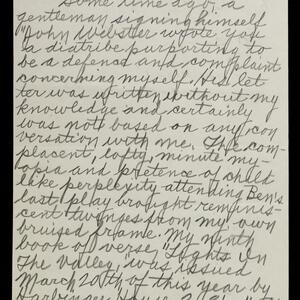 Some time ago, a
gentleman signing himself
"John Webster wrote you
a diatribe purporting to
be a defense and complaint
concerning myself. His let
ter was written without my
knowledge and certainly
was not based on any con
versation with me. The com-
placent, lofty, minute my-
opia and pretence of child
like perplexity attending Ben's
last play brought reminis-
cent twinges from my own
bruised frame. My ninth
book of verse, "Lights In
The Valley," was issued
March 20th of this year by
Harbinger House